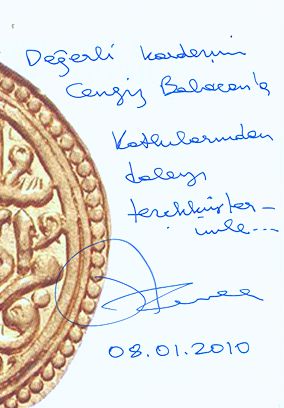 Değerli kardeşim
Cengiz Babacan'a
Katkılarından
dolayı
teşekkürler-
imle...
08.01.2010